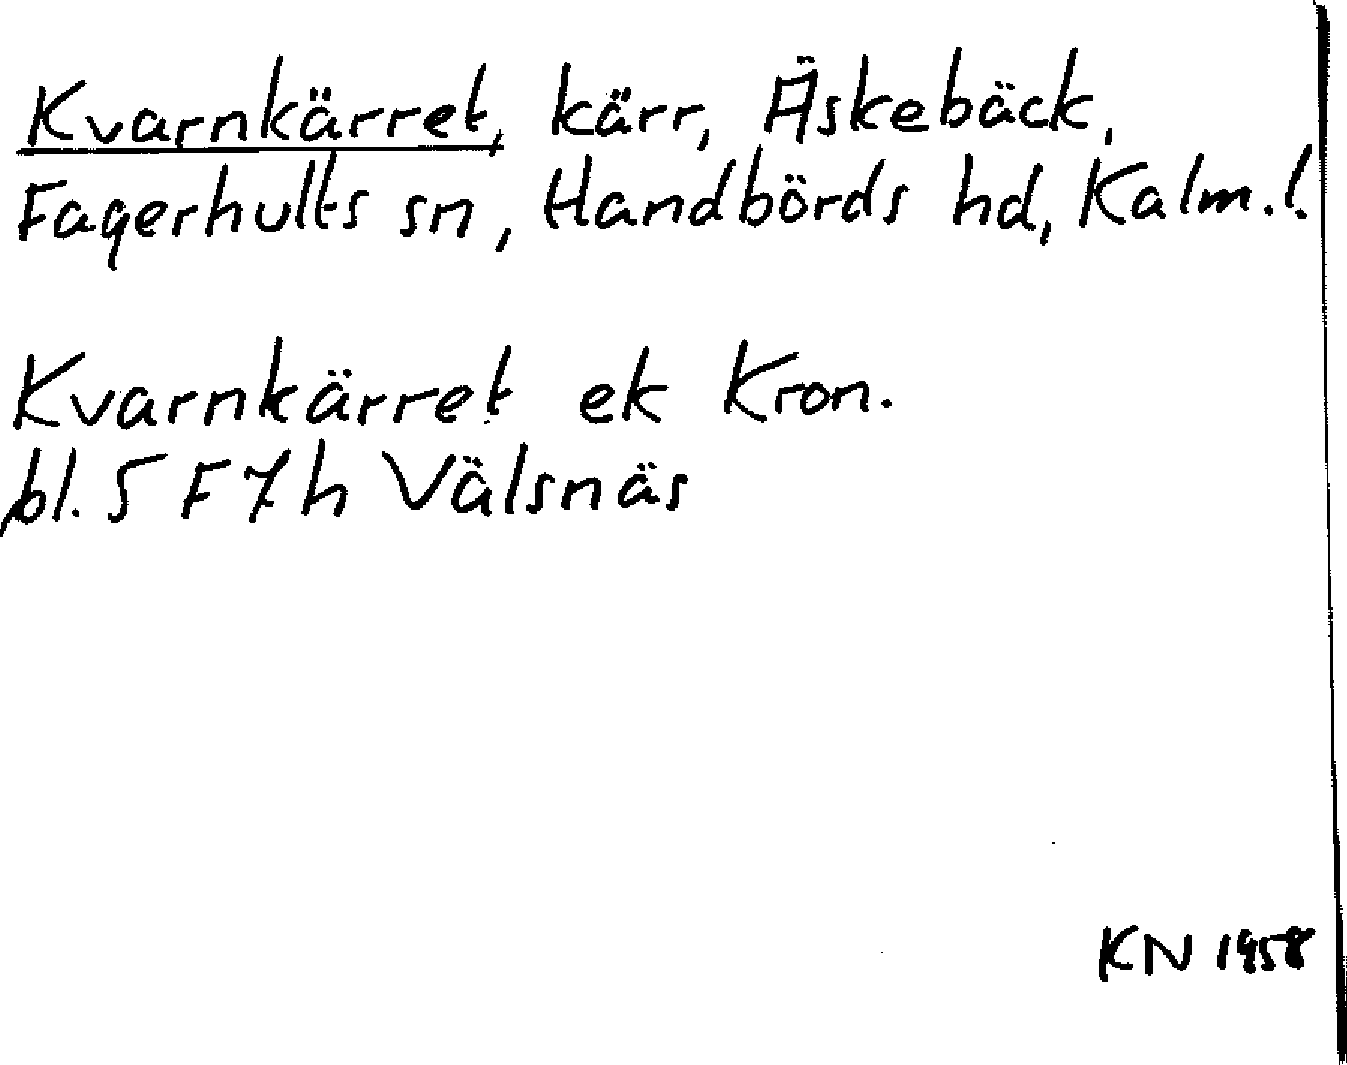 Kvarnkärret, kärr, Äskebäck,
Fagerhults sn, Handbörds hd, Kalm.l.
Kvarnkärret ek Kron.
bl. 5 F 7 h Välsnäs
KN 1958